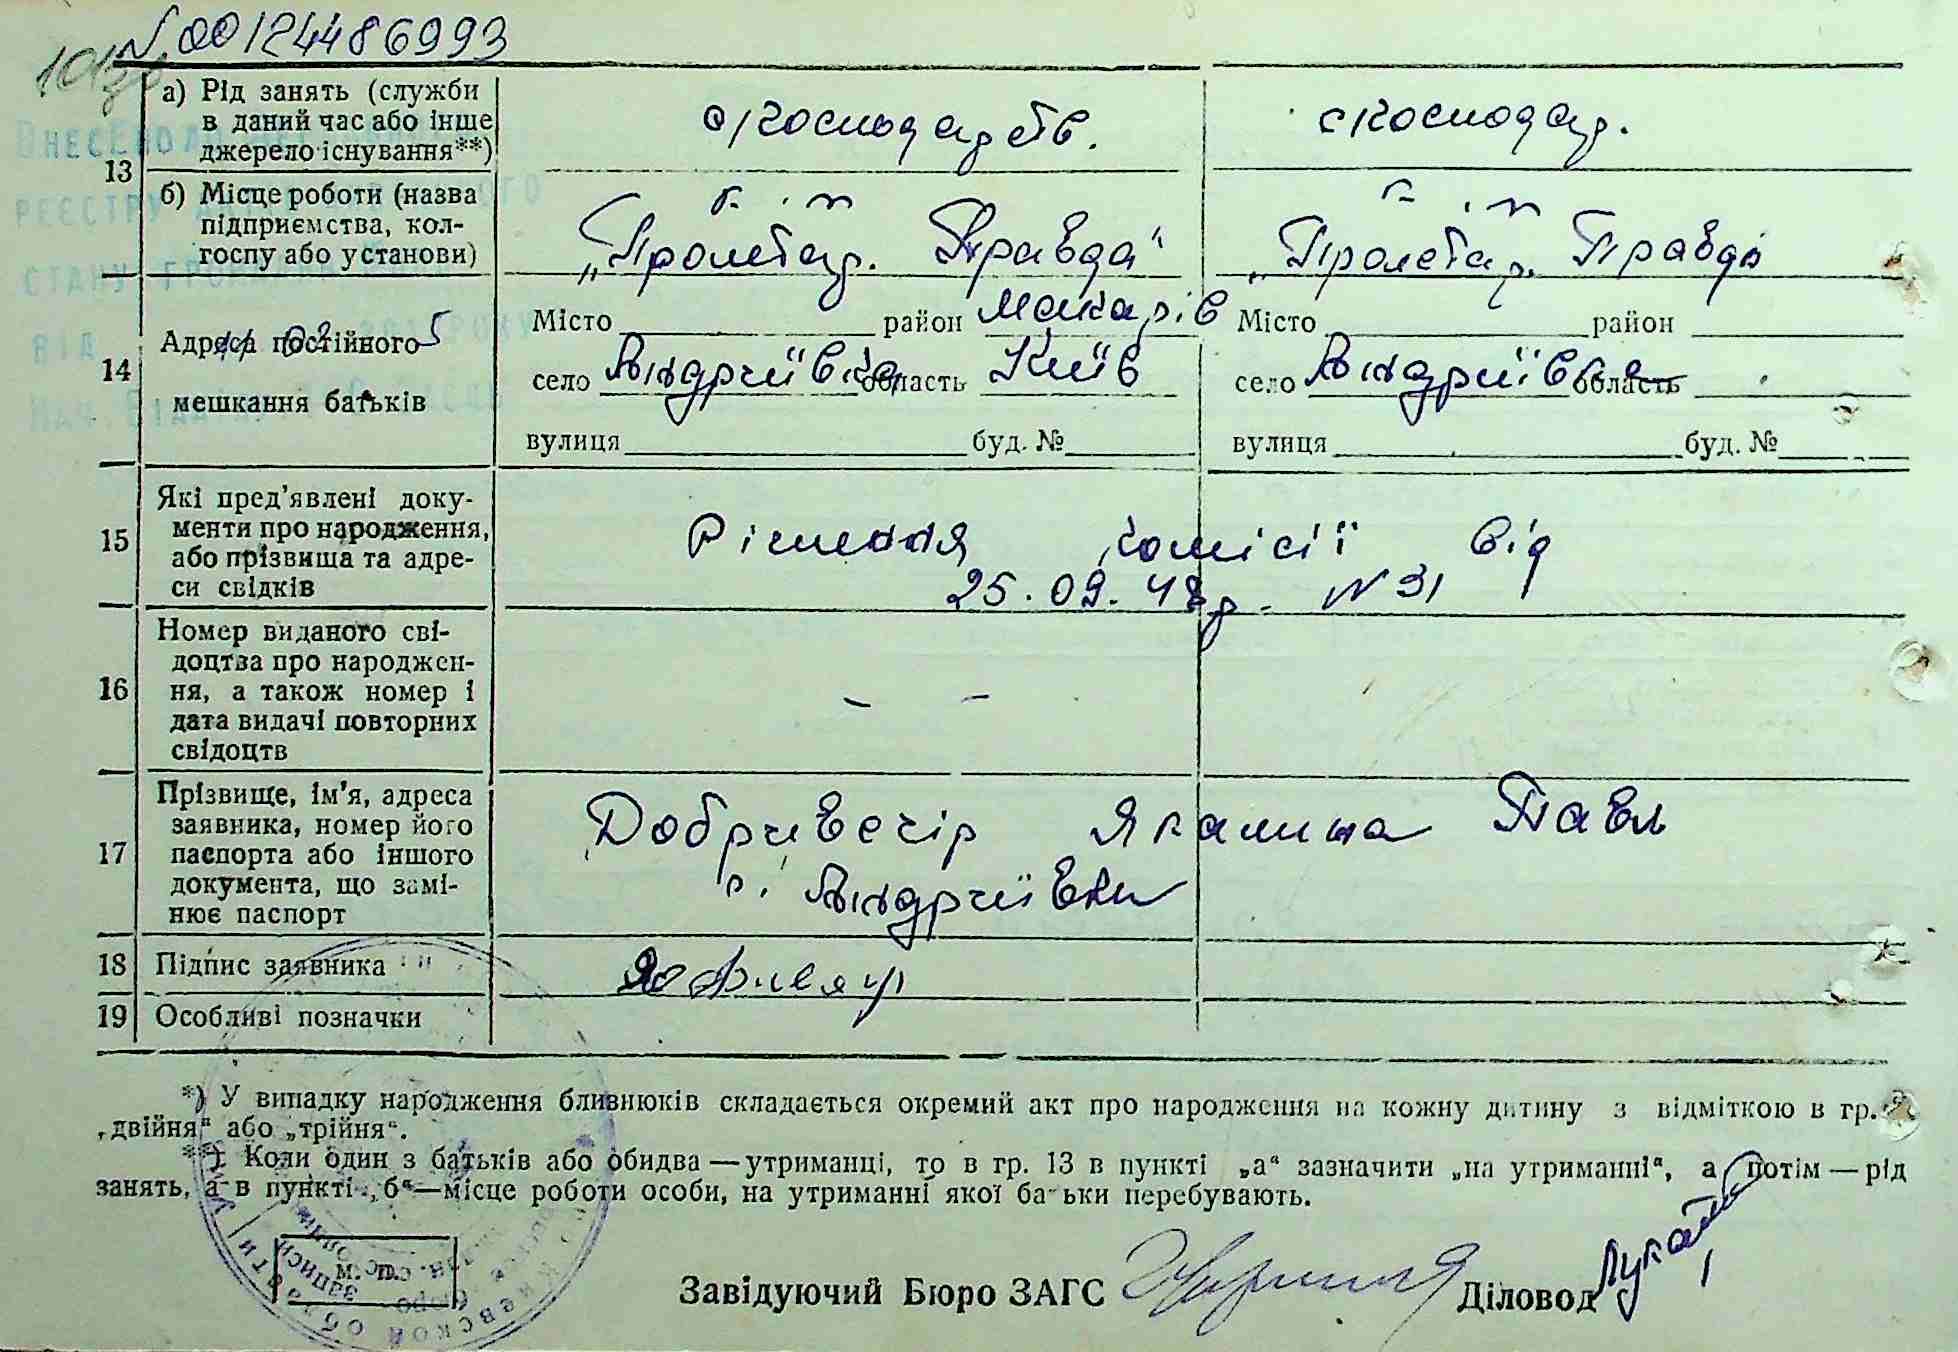 N 00124486993
13
а) Рід занять (служби
в даний час або інше
джерело існування**)
с/господарств.
с/господар.
б) Місце роботи (назва
підприємства, кол-
госпу або установи)
к. і. п
„Пролетар. Правда"
к. і. п
„Пролетар. Правда
14
Адреса постійного
мешкання батьків
Місто район Макарів
село Андріївка область Київ
вулиця буд. №
Місто район
село Андріївка область
вулиця буд. №
15
Які пред'явлені доку-
менти про народження,
або прізвища та адре-
си свідків
Рішення комісії від
25.09.48р. N 31
16
Номер виданого сві-
доцтва про народжен-
ня, а також номер і
дата видачі повторних
свідоцтв
– –
17
Прізвище, ім'я, адреса
заявника, номер його
паспорта або іншого
документа, що замі-
нює паспорт
Добривечір Якилина Павл
с. Андріївки
18
Підпис заявника
19
Особливі позначки
*) У випадку народження близнюків складається окремий акт про народження на кожну дитину з відміткою в гр.
„двійня" або „трійня".
**) Коли один з батьків або обидва — утриманці, то в гр. 13 в пункті „а" зазначити „на утриманні", а потім — рід
занять, а в пункті „б" — місце роботи особи, на утриманні якої батьки перебувають.
М. П.
Завідуючий Бюро ЗАГС
Діловод